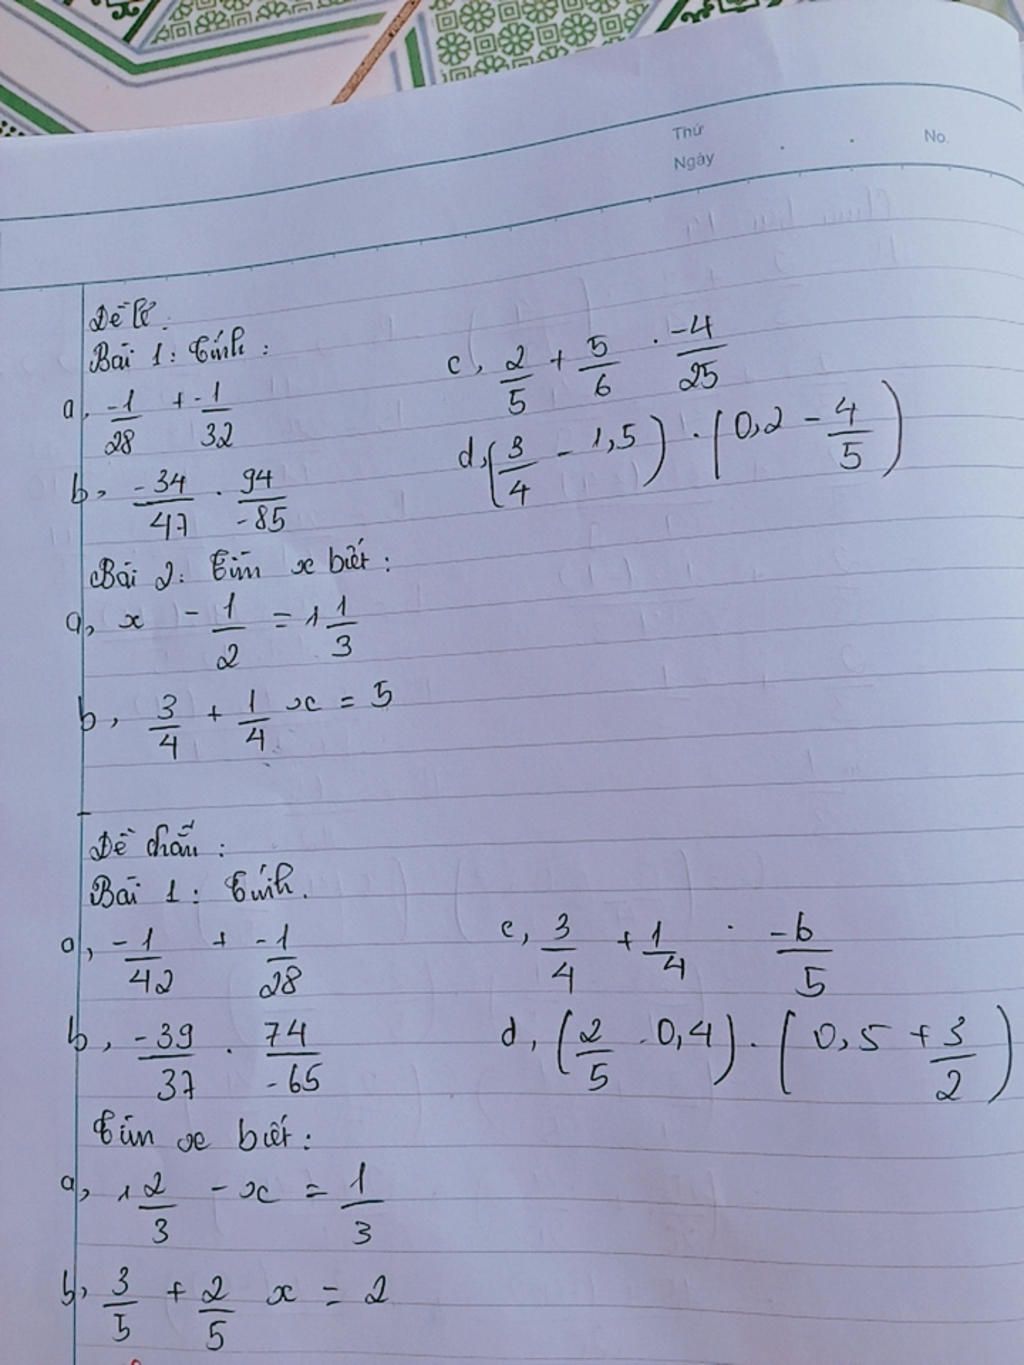 Thứ
Ngày
No.
Đề lẻ:
Bài 1: Tính:
a, -1/28 + -1/32
b, -34/47 . 94/-85
c, 2/5 + 5/6 . -4/25
d, (3/4 - 1,5) . (0,2 - 4/5)
Bài 2: Tìm x biết:
a, x - 1/2 = 1 1/3
b, 3/4 + 1/4 x = 5
Đề chẵn:
Bài 1: Tính.
a, -1/42 + -1/28
b, -39/37 . 74/-65
c, 3/4 + 1/4 . -6/5
d, (2/5 - 0,4) . (0,5 + 3/2)
Tìm x biết:
a, 1 2/3 - x = 1/3
b, 3/5 + 2/5 x = 2